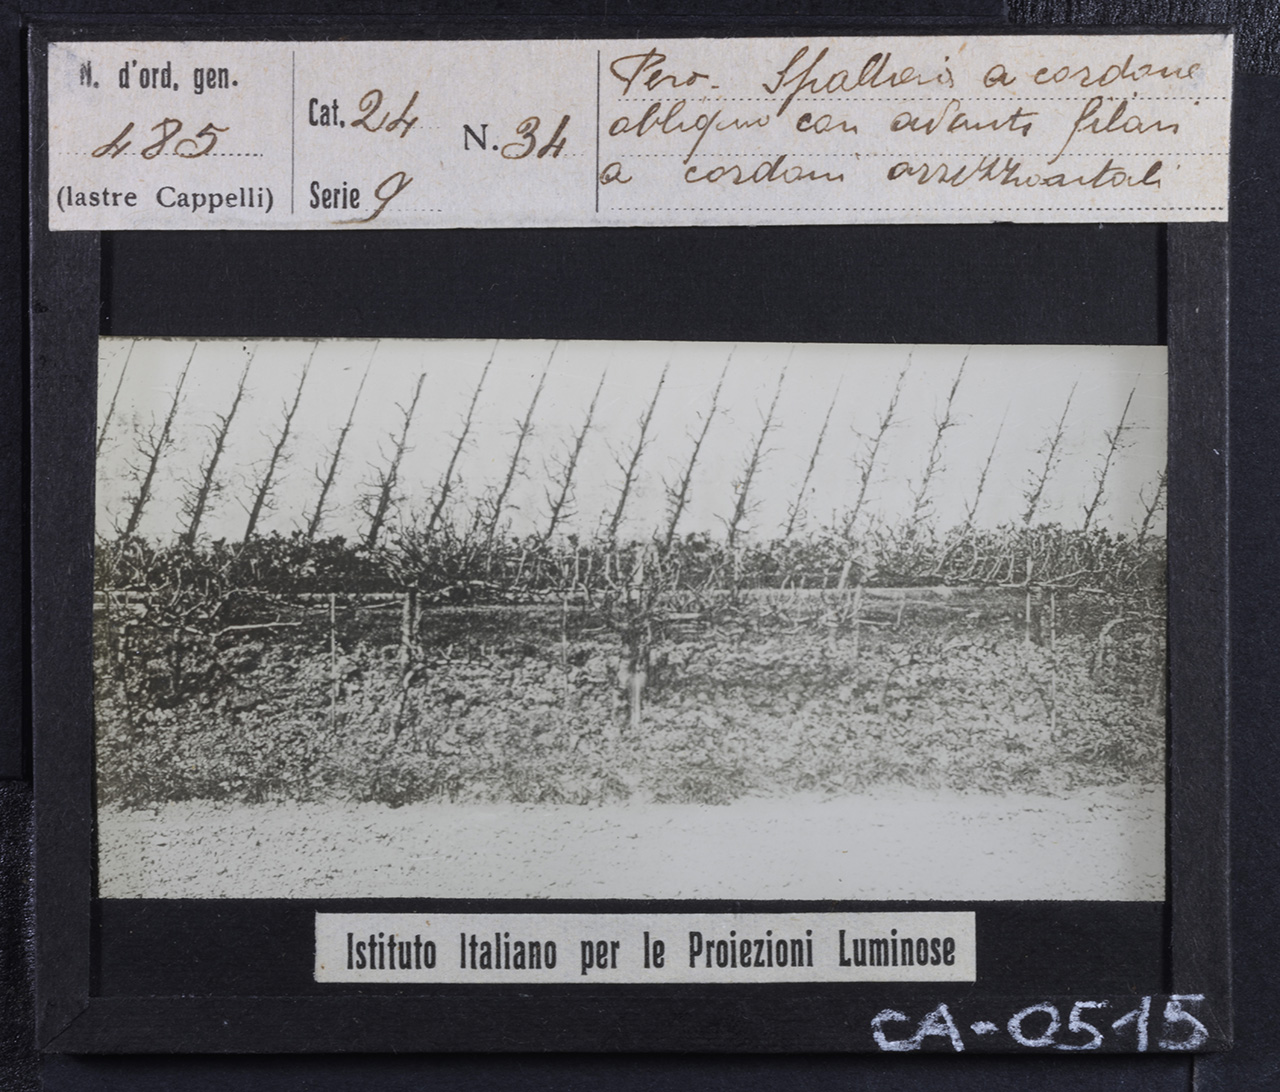 N. d'ord. gen.
485
(lastre Cappelli)
Cat. 24
Serie 9
N. 34
Pero - Spalliera a cordone
obliquo con avanti filari
a cordoni orizzontali
Istituto Italiano per le Proiezioni Luminose
CA-0515